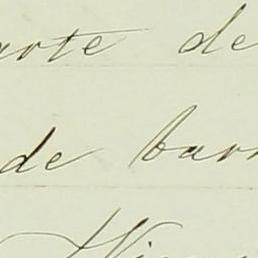 arte de
de barr